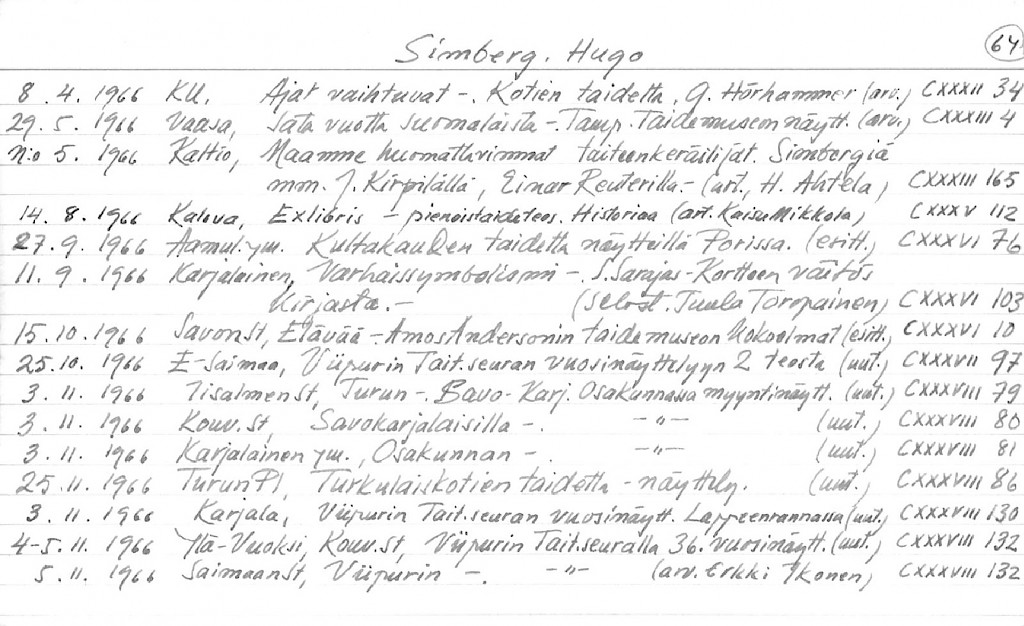 Simberg. Hugo
64
8. 4. 1966 KU. Ajat vaihtuvat -. Kotien taidetta, G. Hörhammer (arv.) CXXXII 34
29. 5. 1966 Vaasa, Sata vuotta suomalaista -. Tamp. Taidemuseon näytt. (arv.) CXXXIII 4
N:o 5. 1966 Kaltio, Maamme huomattavimmat taiteenkeräilijät. Simbergiä
mm. J. Kirpilällä, Einar Reuterilla.- (art., H. Ahtela) CXXXIII 165
14. 8. 1966 Kaleva, Exlibris - pienoistaideteos. Historiaa (art. Kaisu Mikkola) CXXXV 112
27. 9. 1966 Aamul. ym. Kultakauden taidetta näytteillä Porissa. (esitt.) CXXXVI 76
11. 9. 1966 Karjalainen, Varhaissymbolismi -. S. Sarajas-Korteen väitös
kirjasta.- (selost. Tuula Toropainen) CXXXVI 103
15. 10. 1966 Savon St, Elävää - Amos Andersonin taidemuseon kokoelmat (esitt.) CXXXVI 10
25. 10. 1966 E-Saimaa, Viipurin Tait.seuran vuosinäyttelyyn 2 teosta (uut.) CXXXVII 97
3. 11. 1966 Iisalmen St, Turun -. Savo-Karj. Osakunnassa myyntinäytt. (uut.) CXXXVIII 79
3. 11. 1966 Kouv. St, Savokarjalaisilla -. -"- (uut.) CXXXVIII 80
3. 11. 1966 Karjalainen ym., Osakunnan -. -"- (uut.) CXXXVIII 81
25. 11. 1966 Turun Pl, Turkulaiskotien taidetta - näyttely. (uut.) CXXXVIII 86
3. 11. 1966 Karjala, Viipurin Tait.seuran vuosinäytt. Lappeenrannassa (uut.) CXXXVIII 130
4-5. 11. 1966 Ylä-Vuoksi, Kouv. St, Viipurin Tait.seuralla 36. vuosinäytt. (uut.) CXXXVIII 132
5. 11. 1966 Saimaan St, Viipurin -. -"- (arv. Erkki Ikonen) CXXXVIII 132